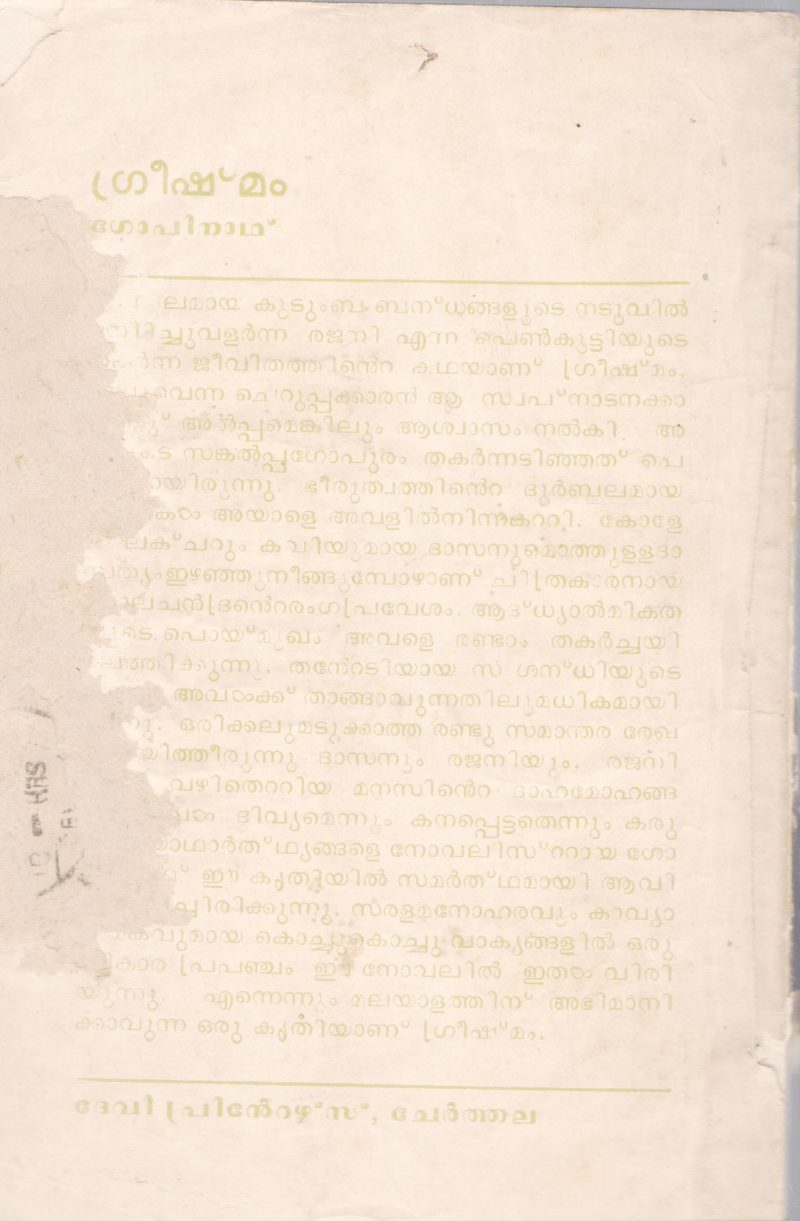 ഗ്രീഷ്മം
ഗോപിനാഥ്
ലമായ കുടുംബ ബന്ധങ്ങളുടെ നടുവിൽ
ച്ചുവളർന്ന രജനി എന്ന പെൺകുട്ടിയുടെ
ജീവിതത്തിന്റെ കഥയാണ് ഗ്രീഷ്മം.
വെന്ന ചെറുപ്പക്കാരൻ ആ സ്വപ്നാടനക്കാ
അൽപ്പമെങ്കിലും ആശ്വാസം നൽകി. അ
സങ്കൽപ്പഗോപുരം തകർന്നടിഞ്ഞത് പെ
യിരുന്നു. ഭീരുത്വത്തിന്റെ ദുർബലമായ
അയാളെ അവളിൽനിന്നകററി. കോളേ
ലക്ചററും കവിയുമായ ദാസനുമൊത്തുളളദാ
ത്യം ഇഴഞ്ഞുനീങ്ങുമ്പോഴാണ് ചിത്രകാരനായ
ചന്ദ്രന്റെരംഗപ്രവേശം. ആദ്ധ്യാൽമികത
ടെ പൊയ്മുഖം അവളെ രണ്ടാം തകർച്ചയി
ലെത്തിക്കുന്നു. തന്റേടിയായ സുഗന്ധിയുടെ
അവൾക്ക് താങ്ങാവുന്നതിലുമധികമായി
ന്നു. ഒരിക്കലുമടുക്കാത്ത രണ്ടു സമാന്തര രേഖ
യിത്തീരുന്നു ദാസനും രജനിയും. രജനി
വഴിതെററിയ മനസിന്റെ ദാഹമോഹങ്ങ
ദിവ്യമെന്നും കനപ്പെട്ടതെന്നും കരു
യാഥാർത്ഥ്യങ്ങളെ നോവലിസ്ററായ ഗോ
ഈ കൃതിയിൽ സമർത്ഥമായി ആവി
ച്ചിരിക്കുന്നു. സരളമനോഹരവും കാവ്യാ
കവുമായ കൊച്ചുകൊച്ചു വാക്യങ്ങളിൽ ഒരു
കാര പ്രപഞ്ചം ഈ നോവലിൽ ഇതൾ വിരി
യുന്നു. എന്നെന്നും മലയാളത്തിന് അഭിമാനി
ക്കാവുന്ന ഒരു കൃതിയാണ് ഗ്രീഷ്മം.
ദേവി പ്രിന്റേഴ്സ്, ചേർത്തല